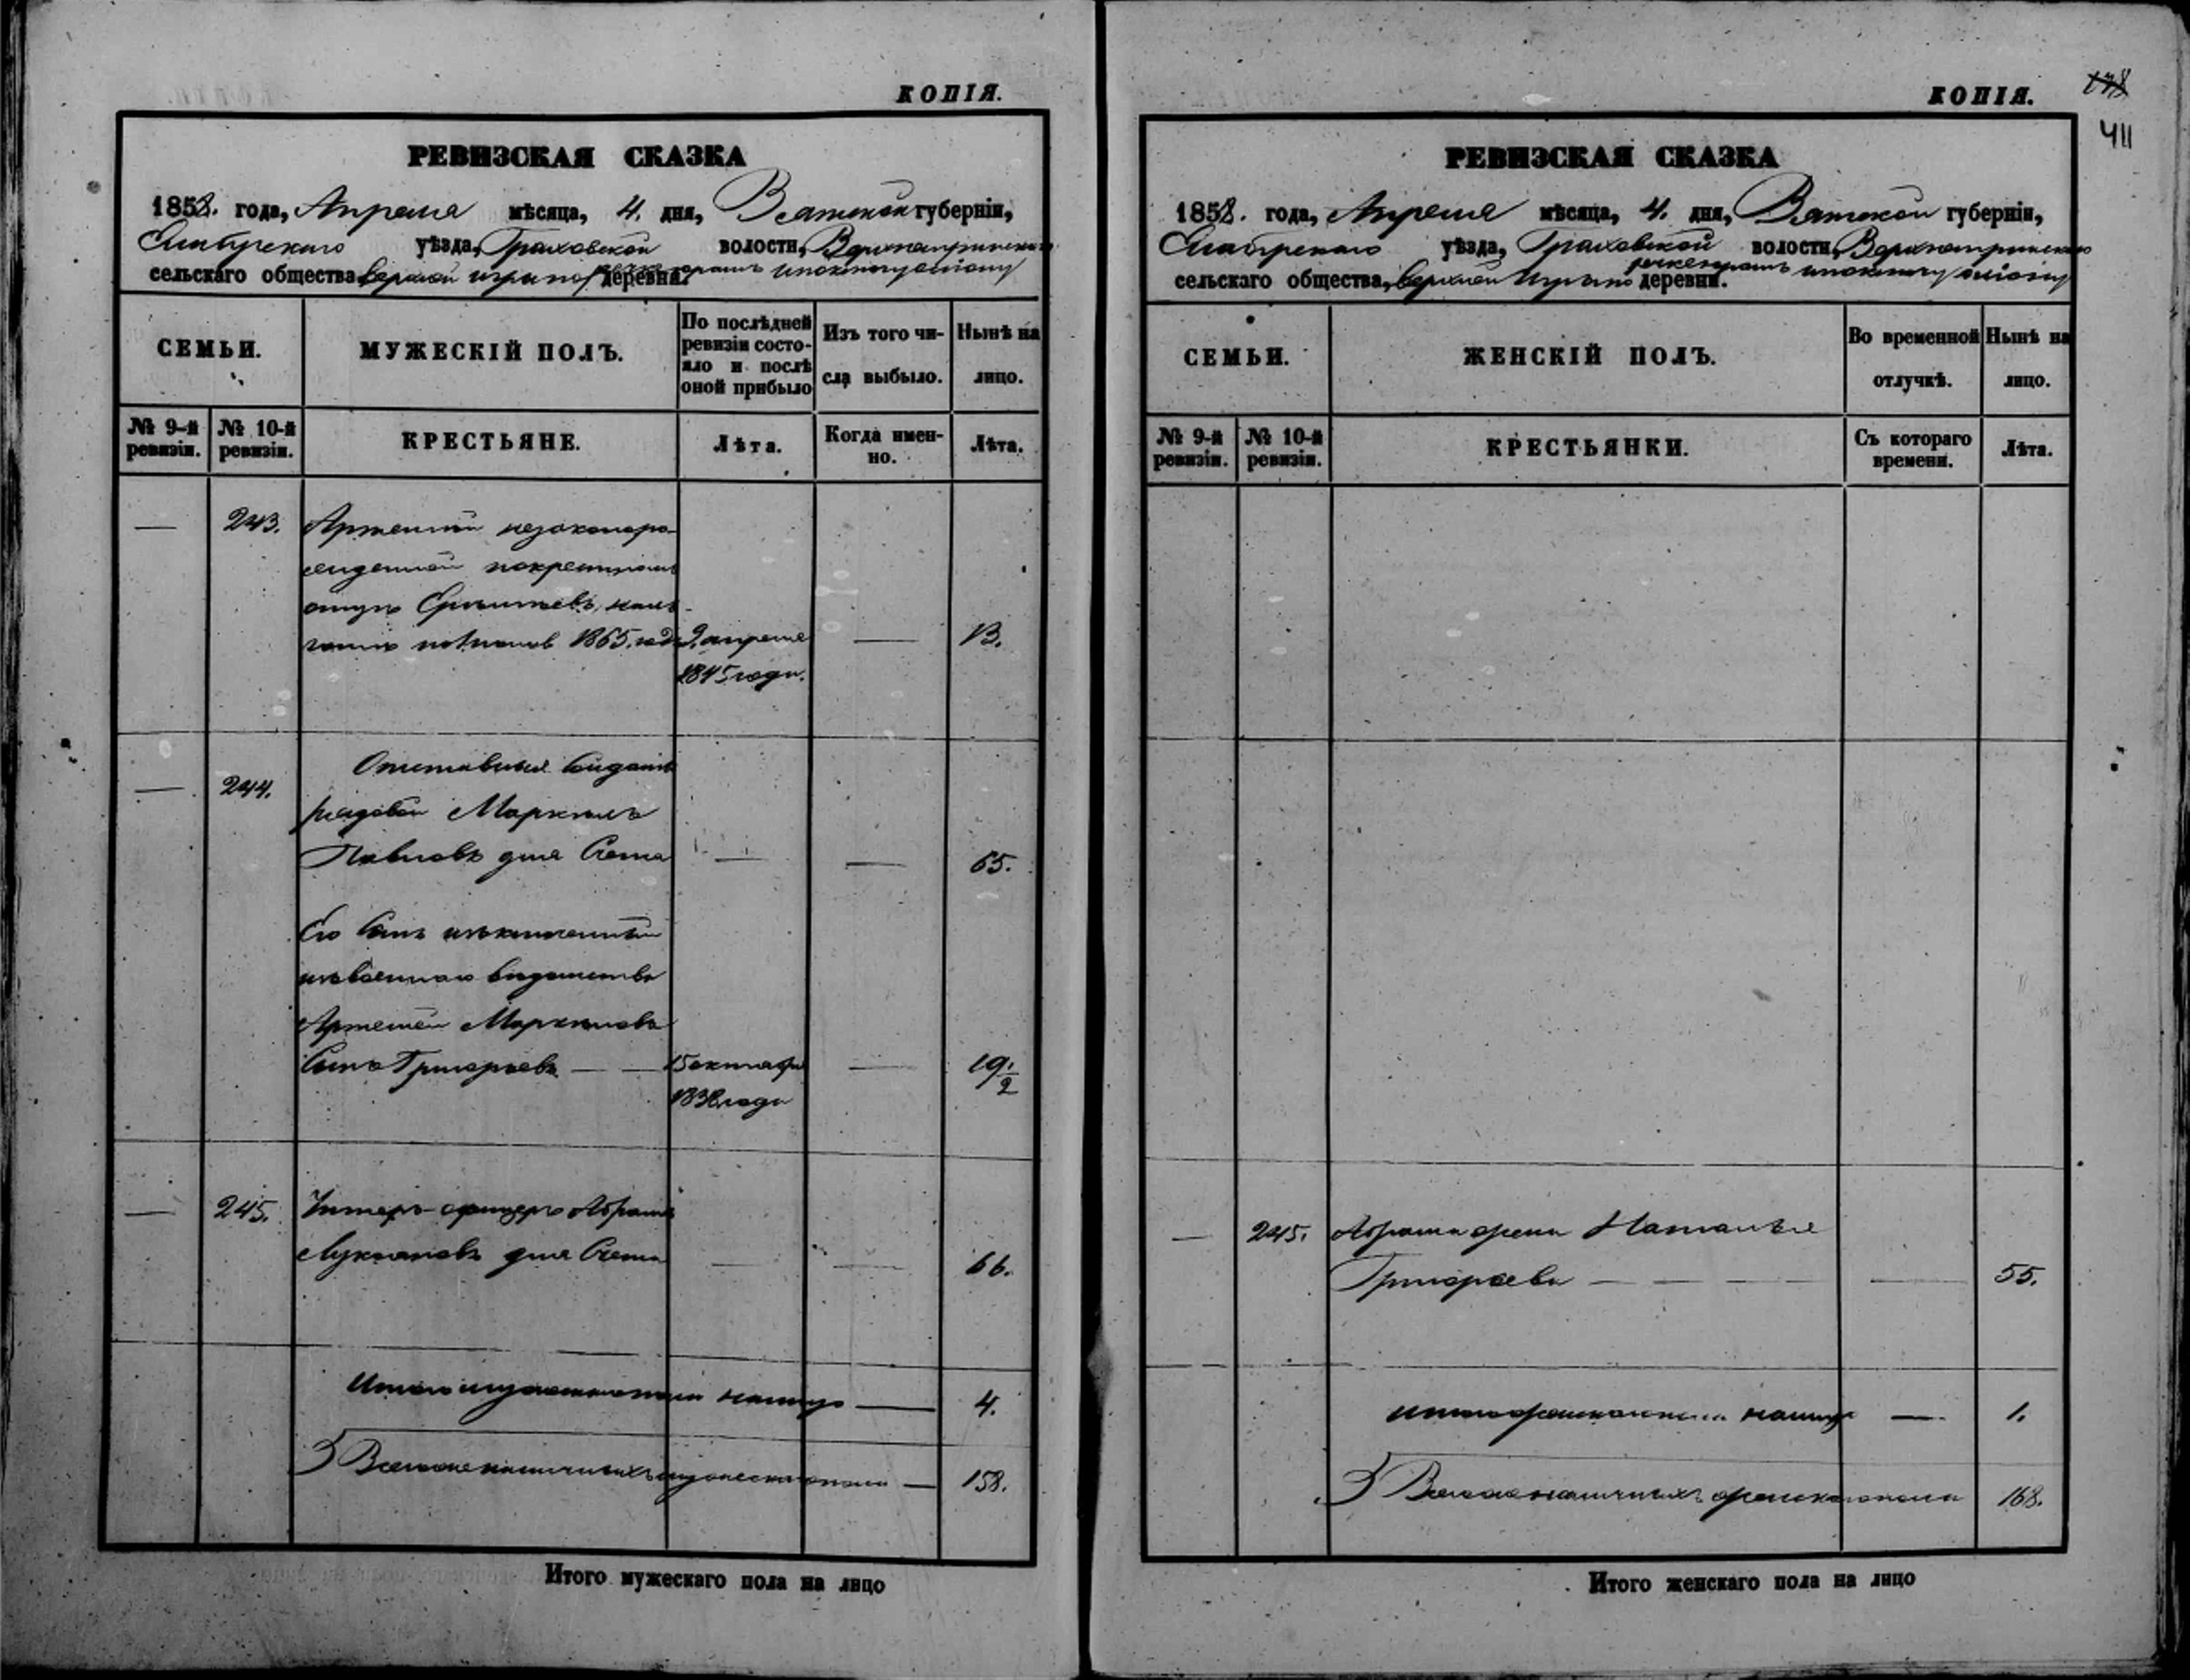 КОПІЯ.
РЕВИЗСКАЯ СКАЗКА
1858. года, Апреля мѣсяца, 4. дня, Вятской губерніи,
Елабугскаго уѣзда, Граховской волости,
сельскаго общества, верхней игры по деревни.
СЕМЬИ.
МУЖЕСКІЙ ПОЛЪ.
По послѣдней ревизіи состояло и послѣ оной прибыло
Изъ того числа выбыло.
Нынѣ на лицо.
№ 9-й ревизіи.
№ 10-й ревизіи.
КРЕСТЬЯНЕ.
Лѣта.
Когда именно.
Лѣта.
— 243. Артемій незаконоро-
жденной покрестному
отцу
1865. года 2 апреля — 13.
1845 года.
Отставныя Солдаты
— 244. рядовой Маркелъ
Павловъ для Счета — — 65.
Его Сынъ изключенный
изъ военнаго ведомства
Артемей Маркелова
Сынъ Григорьевъ — — 15 октября — 19 1/2
1838 года
— 245. Унтеръ-офицеръ Абрамъ
Лукояновъ для Счета — — 66.
Итого мужеска пола налицо — 4.
Всего наличныхъ мужеска пола — 158.
Итого мужескаго пола на лицо
КОПІЯ.
178
411
РЕВИЗСКАЯ СКАЗКА
1858. года, Апреля мѣсяца, 4. дня, Вятской губерніи,
Елабугскаго уѣзда, Граховской волости,
сельскаго общества, верхней Игры по деревни.
СЕМЬИ.
ЖЕНСКІЙ ПОЛЪ.
Во временной отлучкѣ.
Нынѣ на лицо.
№ 9-й ревизіи.
№ 10-й ревизіи.
КРЕСТЬЯНКИ.
Съ котораго времени.
Лѣта.
— 245. Абрама жена Наталья
Григорьева — — — — — 55.
итого женска пола налицо — 1.
Всего наличныхъ женска пола 168.
Итого женскаго пола на лицо